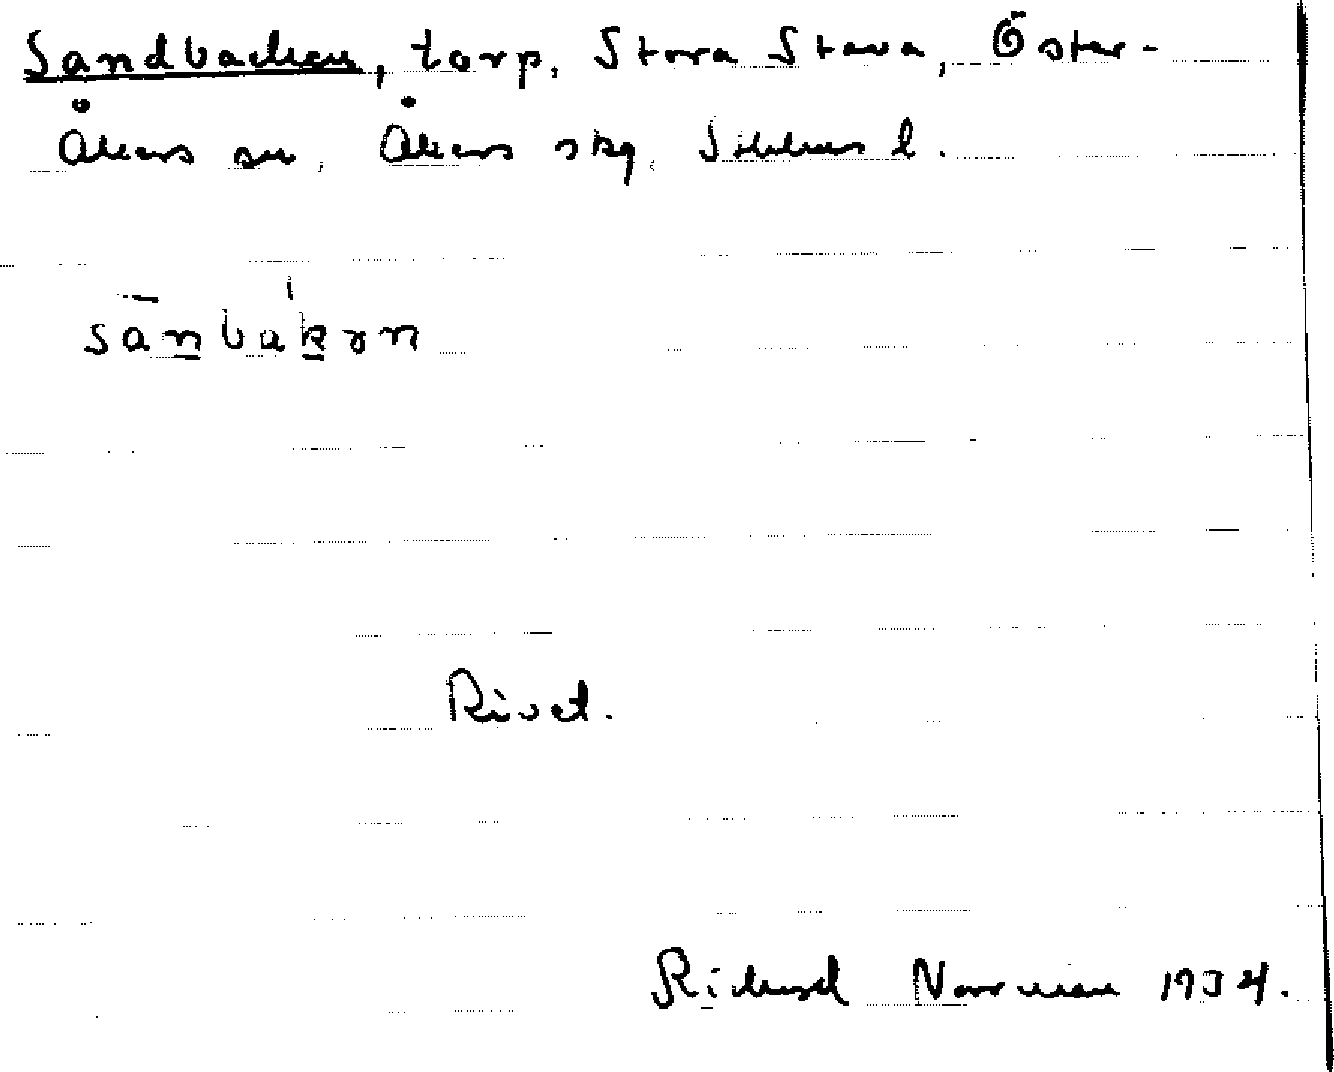 Sandbacken, torp, Stora Stava, Öster-
Åkers sn, Åkers skg. Sthlms l.
sānbakən
Rivet.
Richard Norrman 1934.